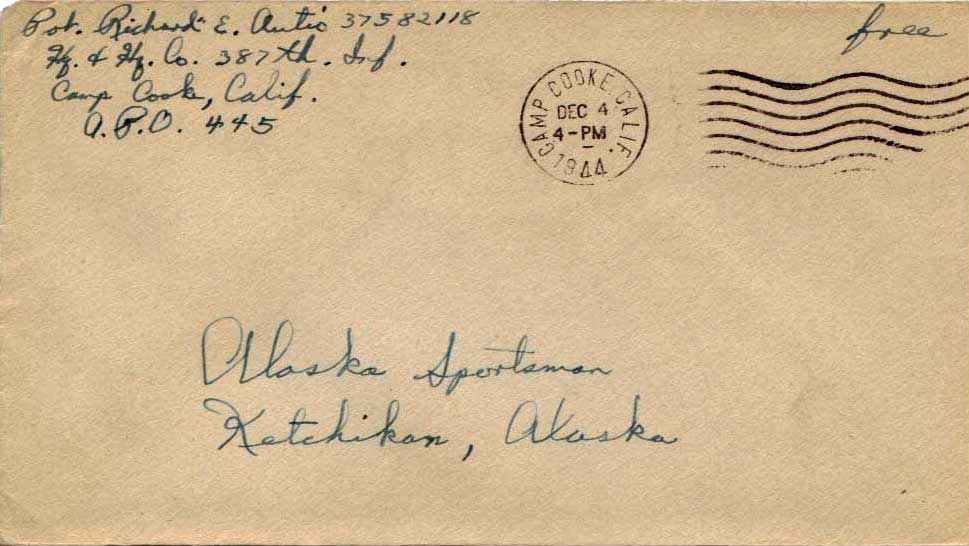 Pvt. Richard E. Autio 37582118
Hq. & Hq. Co. 387th. Inf.
Camp Cooke, Calif.
A.P.O. 445
free
CAMP COOKE, CALIF.
DEC 4
4-PM
1944
Alaska Sportsman
Ketchikan, Alaska